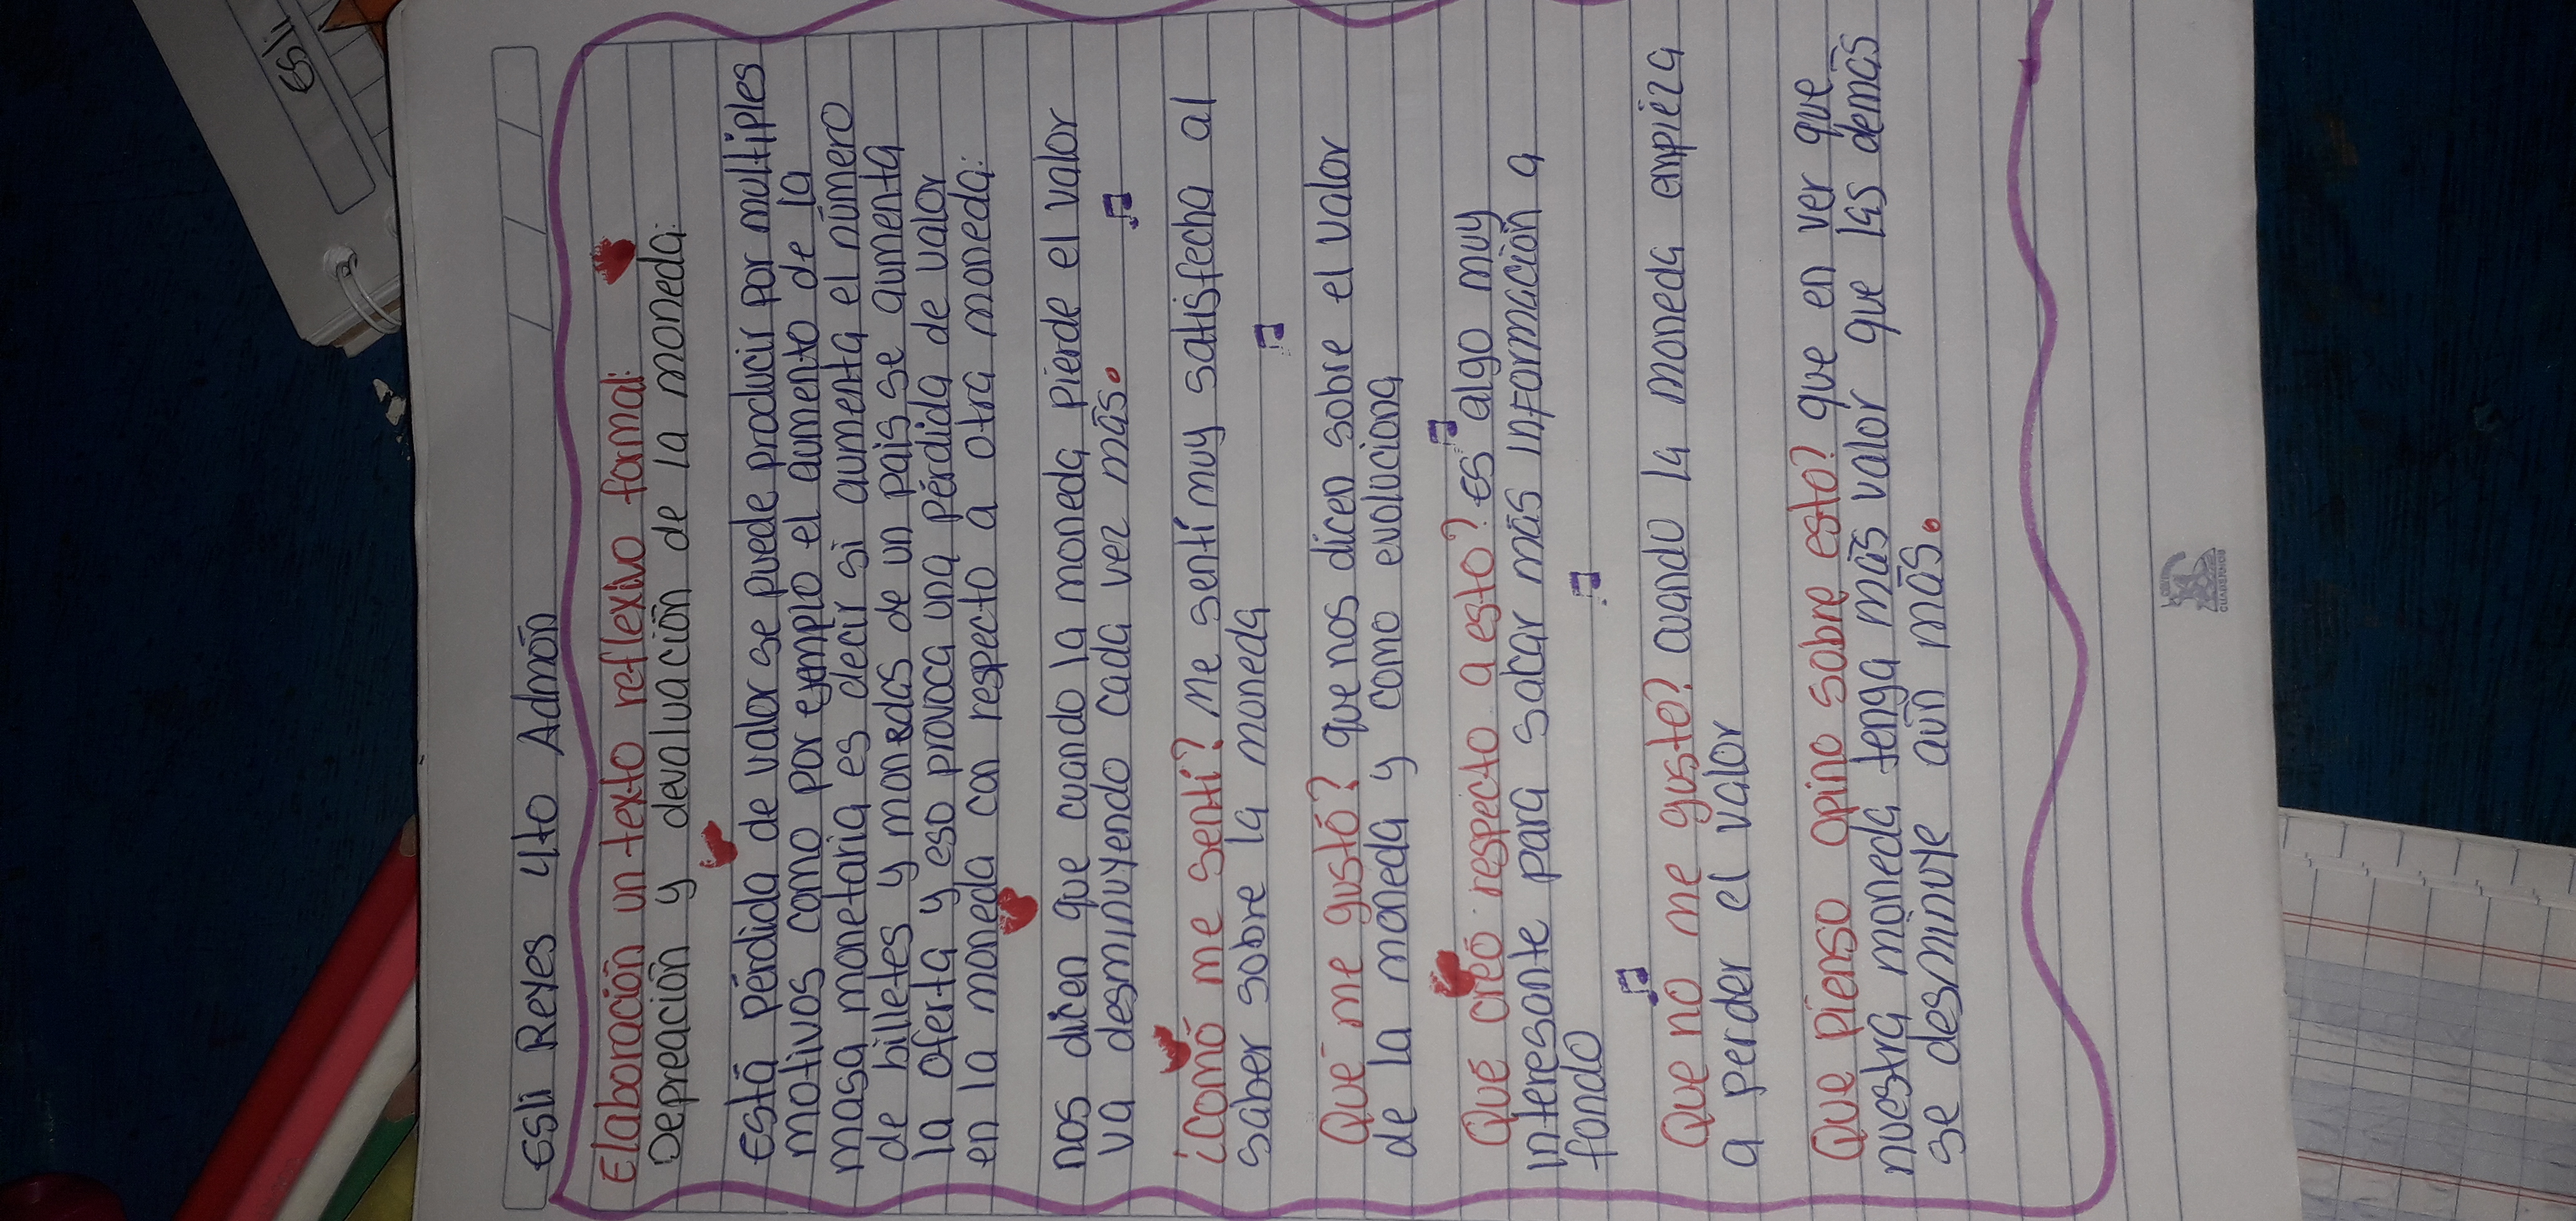 Esli Reyes 4to Admón
Elaboración un texto reflexivo formal:
Depreación y devaluación de la moneda:
Está pérdida de valor se puede producir por multiples
motivos como por ejemplo el aumento de la
masa monetaria es decir si aumenta el número
de billetes y monedas de un pais se aumenta
la oferta y eso provoca una pérdida de valor
en la moneda con respecto a otra moneda:
nos dicen que cuando la moneda pierde el valor
va desminuyendo cada vez más.
¿Comó me sentí? Me sentí muy satisfecha al
saber sobre la moneda
Qué me gustó? que nos dicen sobre el valor
de la moneda y como evoluciona
Qué creó respecto a esto? es algo muy
interesante para sacar más información a
fondo
Que no me gusto? cuando la moneda empieza
a perder el valor
Que pienso opino sobre esto? que en ver que
nuestra moneda tenga más valor que las demás
se desminuye aún más.
Esli
CUADERNOS